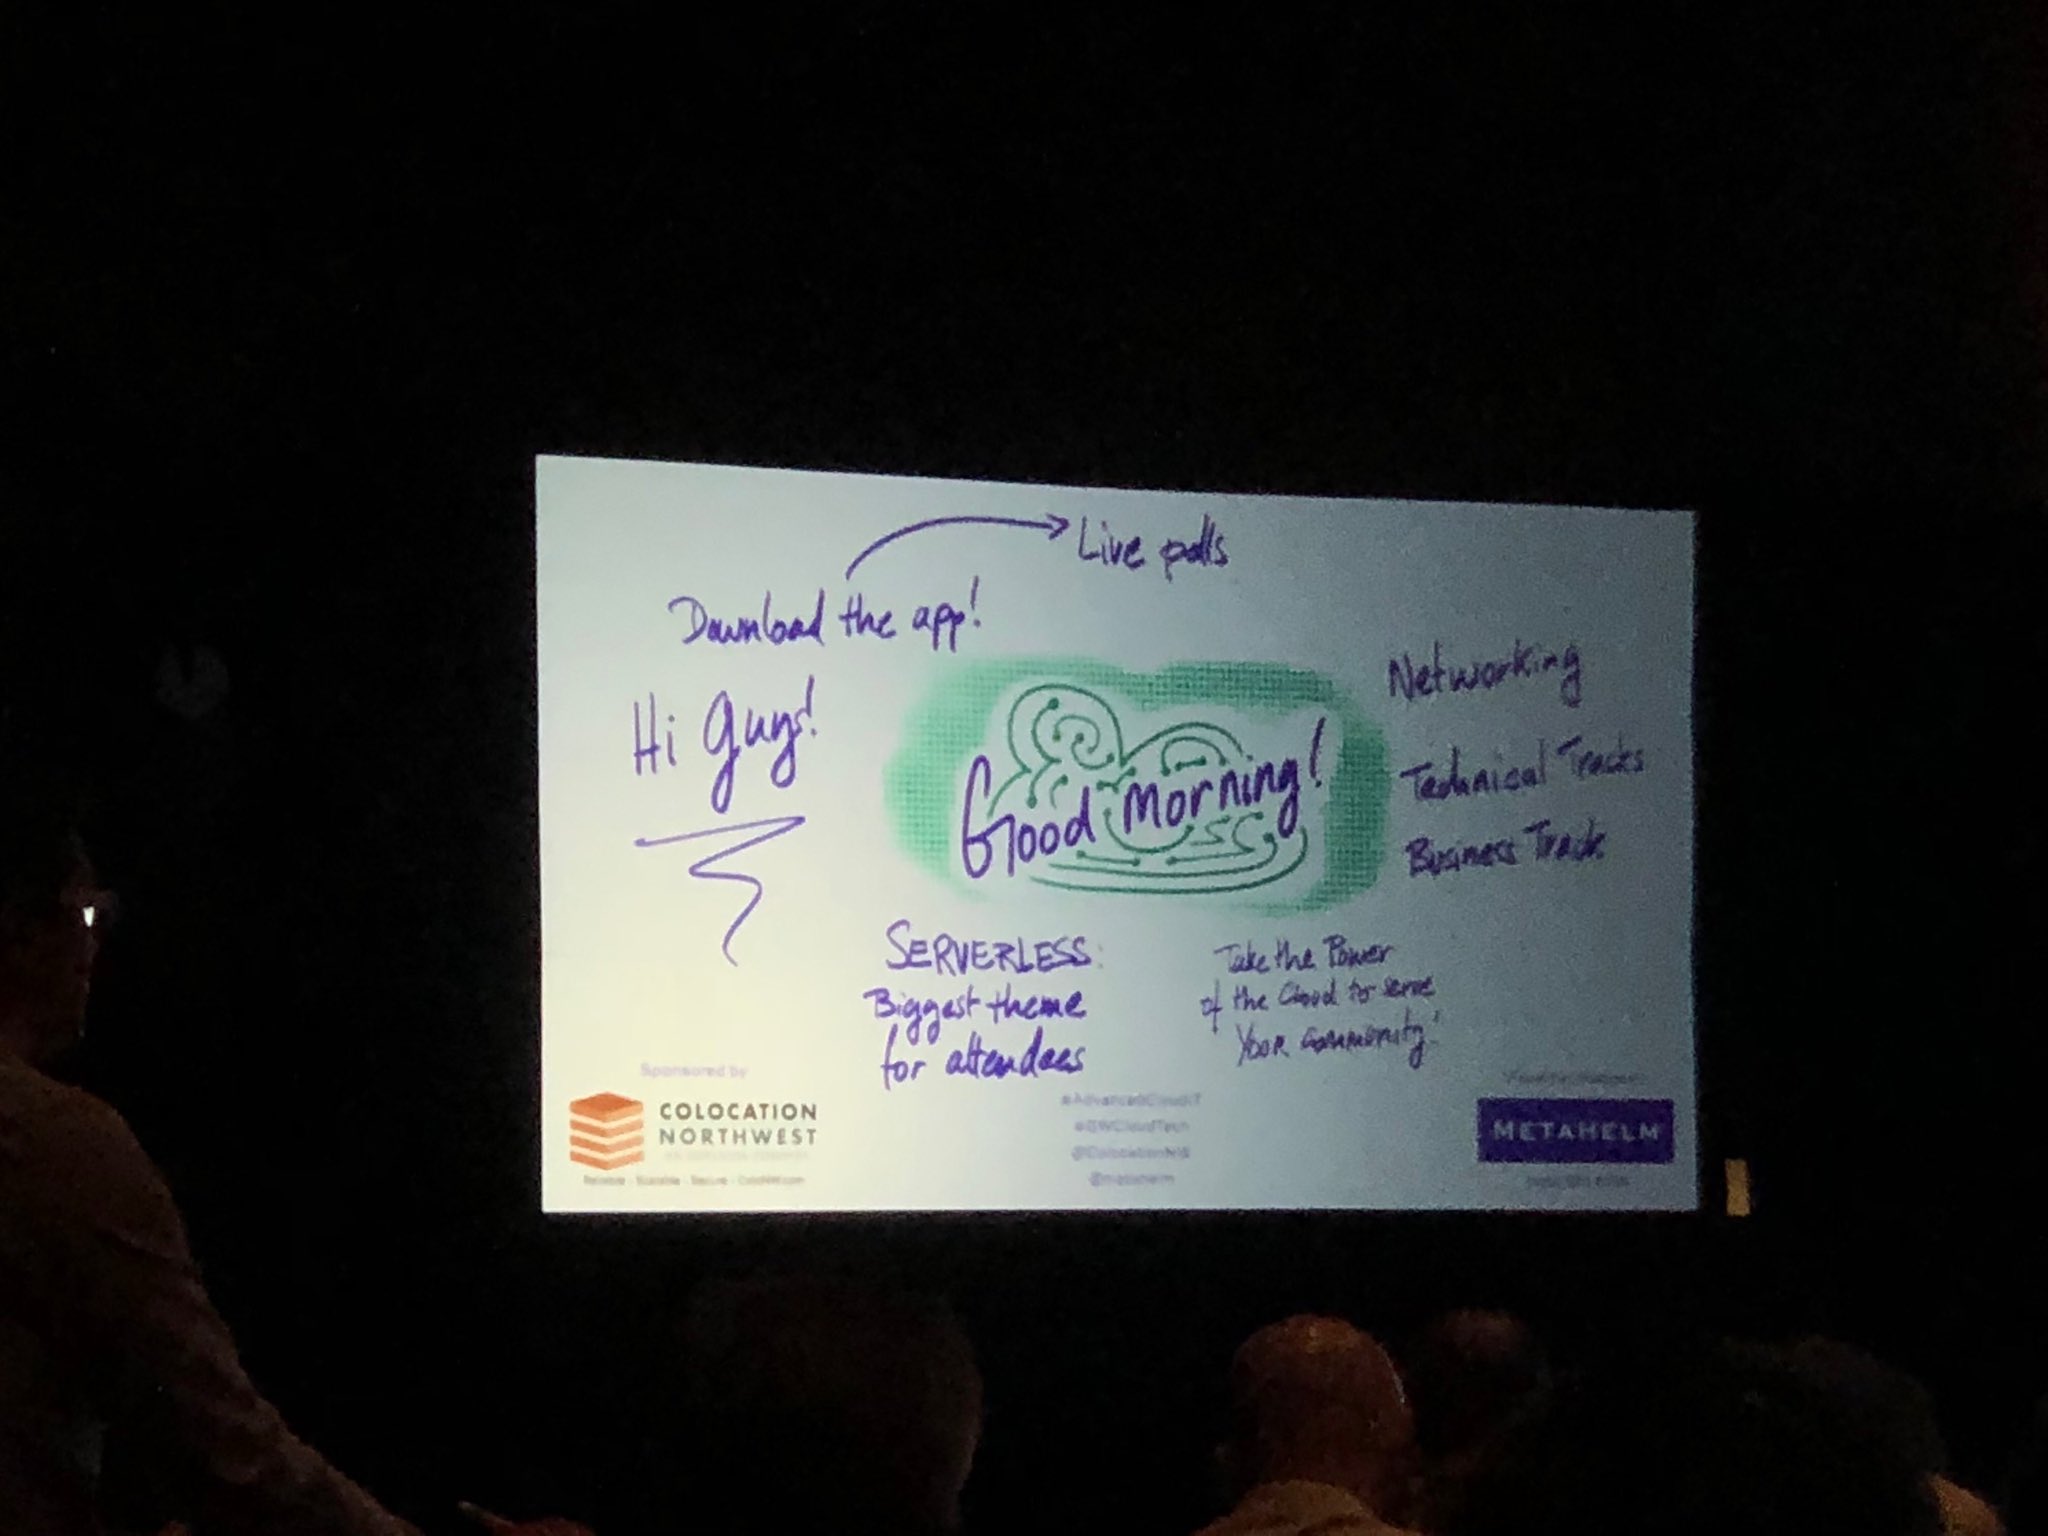 Live polls
Download the app!
Hi Guys!
Good Morning!
Networking
Technical Tracks
Business Track
SERVERLESS:
Biggest theme
for attendees
Take the Power
of the Cloud to serve
Your community!
Sponsored by
COLOCATION
NORTHWEST
Reliable - Scalable - Secure - ColoNW.com
#AdvancedCloudIT
@ColocationNW
@metahelm
METAHELM